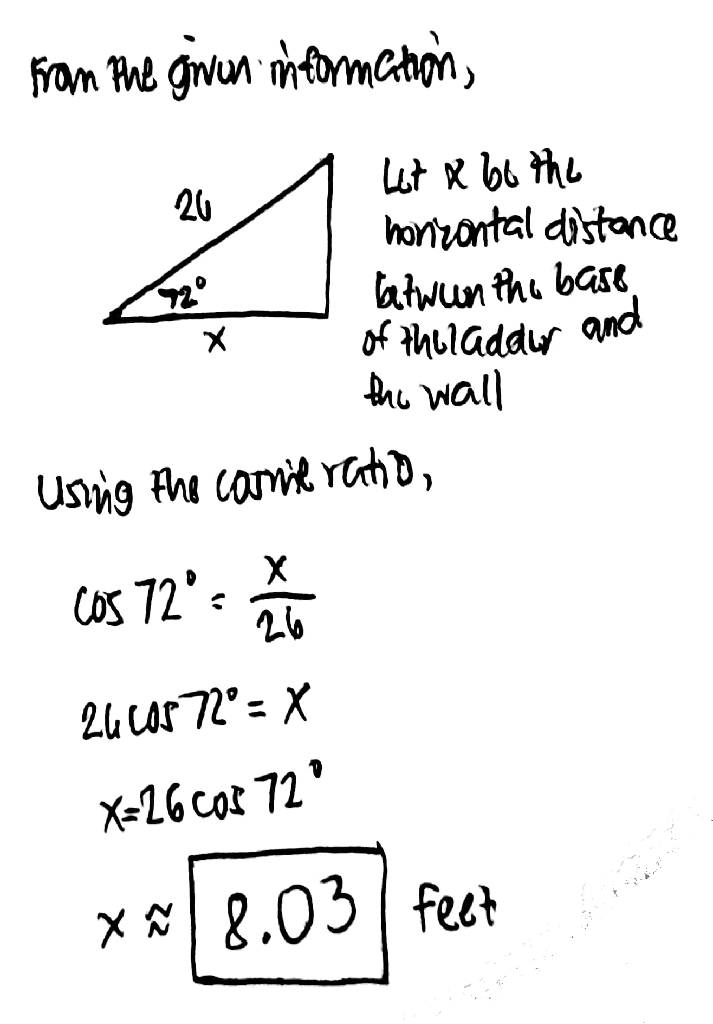 From the given information,
26
72°
x
Let x be the
horizontal distance
between the base
of the ladder and
the wall
Using the cosine ratio,
cos 72° = x/26
26 cos 72° = x
x=26 cos 72°
x ≈ 8.03 feet